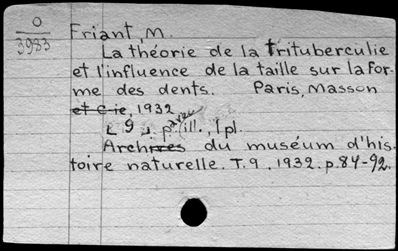 O
3983
Friant, M.
La théorie de la trituberculie
et l'influence de la taille sur la for-
me des dents. Paris, Masson
et Cie, 1932
9 p. avec ill., 1 pl.
Archives du muséum d'his-
toire naturelle. T. 9, 1932. p. 84-92.